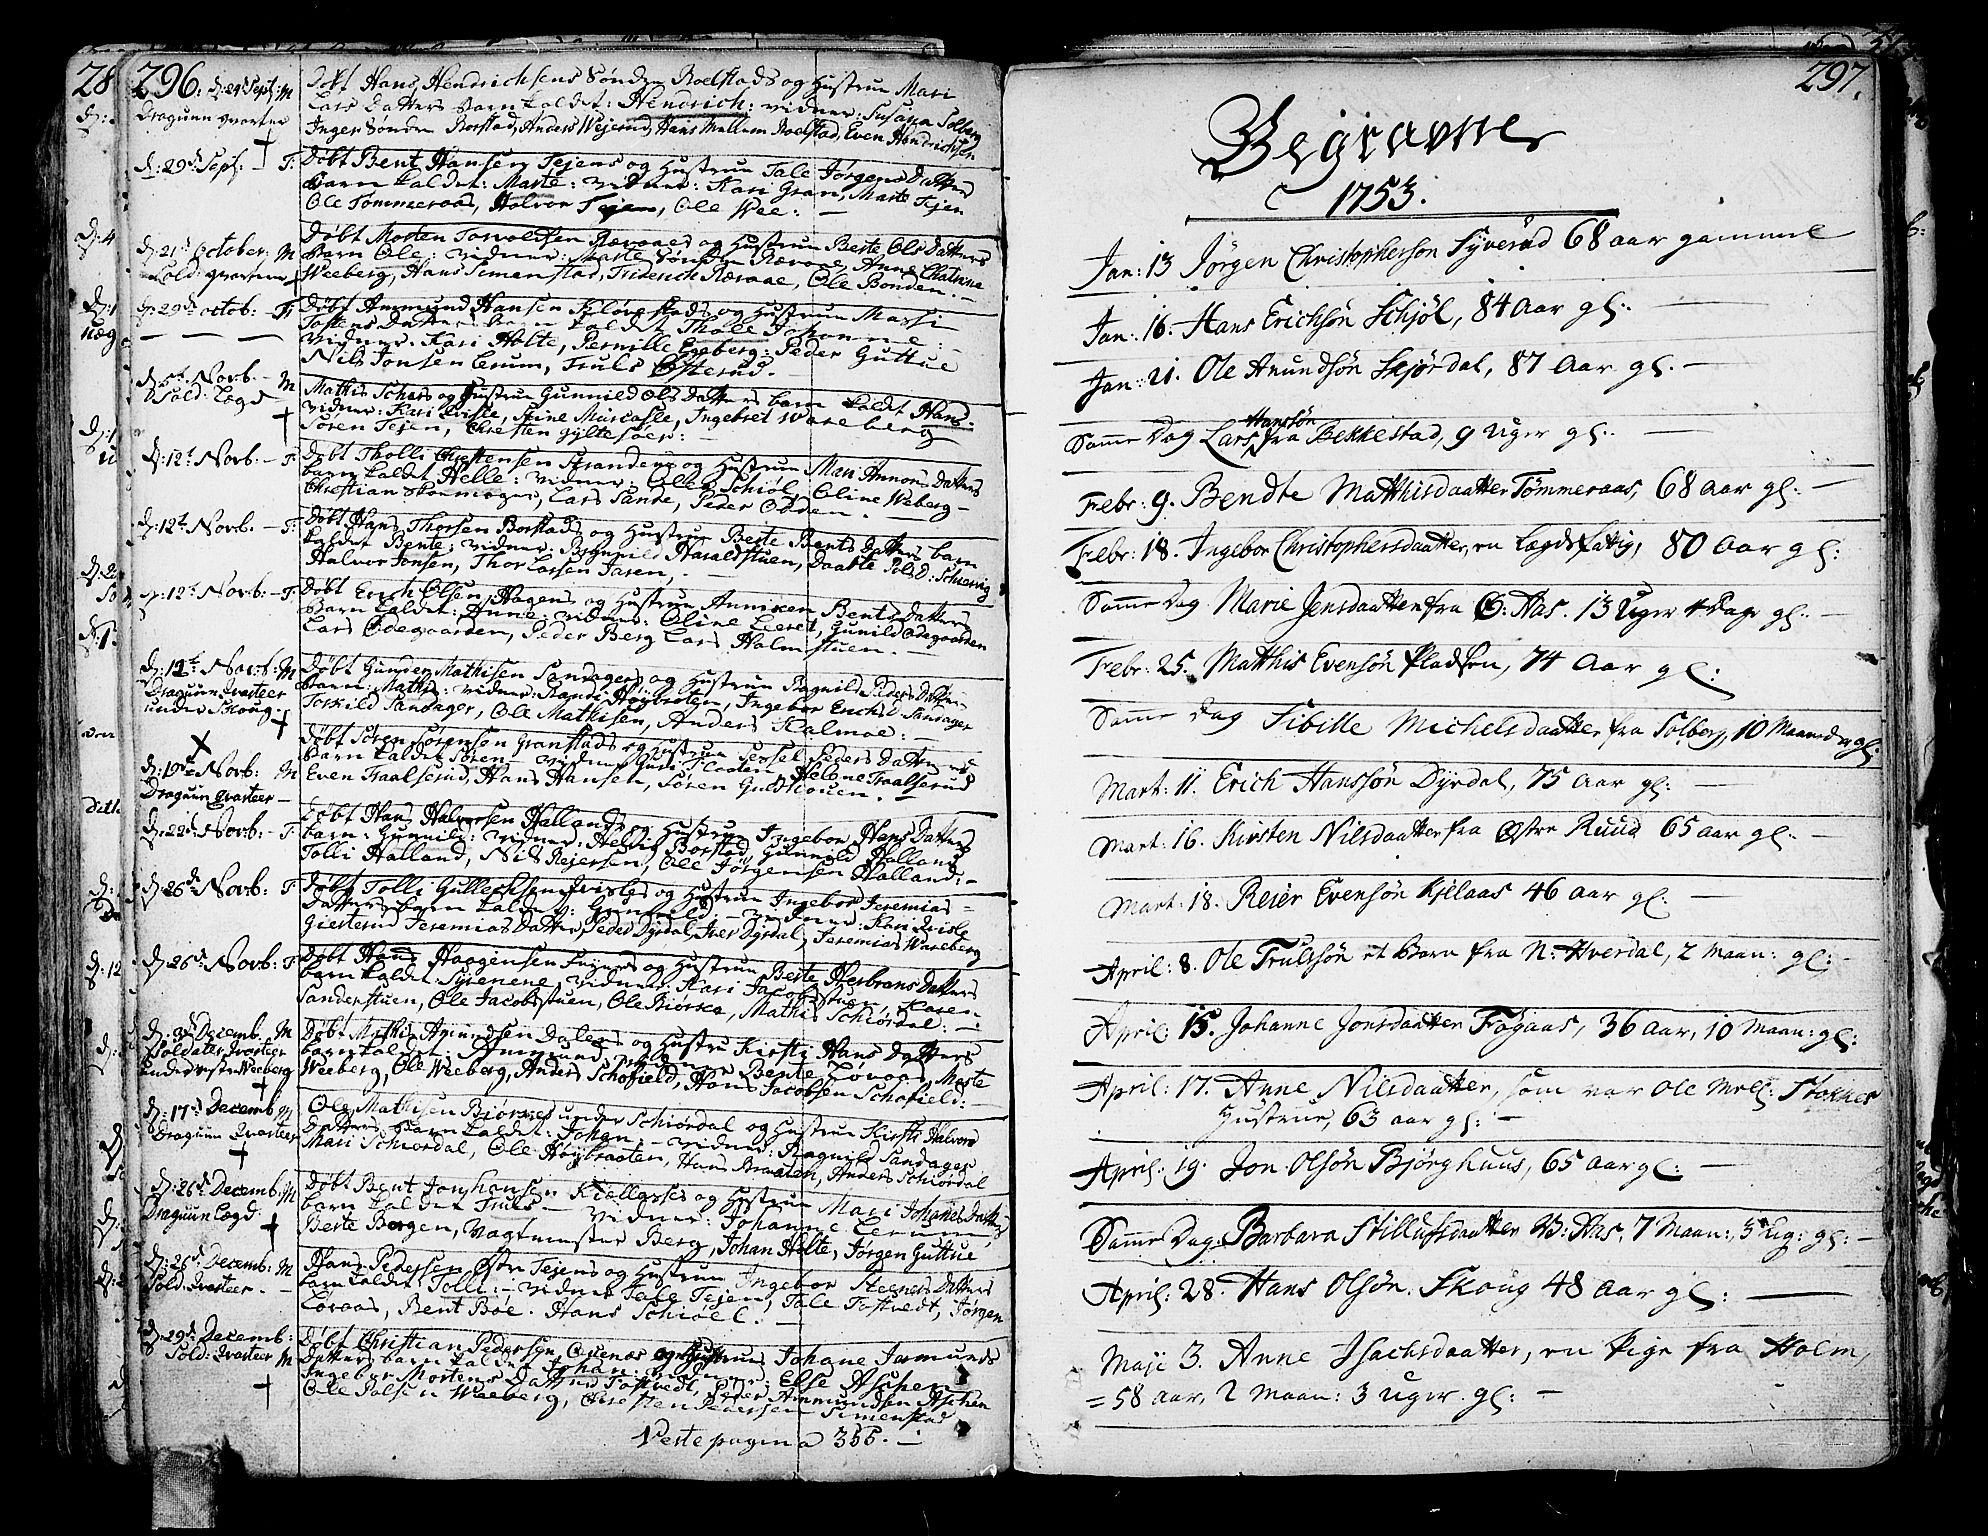 296.
d: 24 Sept: M
Draguun qvarteer
Døbt Hans Hendrichsens Sønden Roelstads og Hustrue Mari
Lars Datters barn kaldet: Hendrich: vidner: Susana Solberg
Inger Sønden Borstad, Anders Wejerud, Hans Mellem Roelstad, Even Hendrichsen
d: 29d Sept: - F:
Døbt Bent Hansen Tejens og Hustrue Tale Jørgens Datters
Barn kaldet: Marte: vidner: Kari Gran, Marte Tejen
Ole Tømmeraas, Halvor Tejen, Ole Wee: -
d: 21d October: M
Sold: qvarteer
Døbt Morten Torvoldsen Rævaaes og Hustrue Berte Ols Datters
Barn Ole: vidner: Marte Sønden Rævaae, Anne Chatrine
Weeberg, Hans Simenstad, Friderich Rævaae, Ole Bonden. -
d: 29d octob: - F:
Døbt Ammund Hansen Kløvestads og Hustrue Massi
Tostens Datters barn kaldet Tholle Johanne: -
vidner: Kari Holte, Pernille Egeberg: Peder Guttue
Nils Jonsen Crum, Truls Østerud. -
d: 5t Novb. - M
Sold: Lægd
Mathis Schars og Hustrue Gunnild Ols Datters barn kaldet Hans.
vidner: Kari Qvisle, Stine Muscasle, Ingebret Wareberg
Søren Tejen, Christen Gyltesoer: -
d: 12t Novb. - F.
Døbt Tholli Christensen Strandens og Hustrue Mari Ammons Datters
barn kaldet Helle: vidner: Olle Schiøl, Oline Weberg -
Christian Skomager, Lars Sande, Peder Odden. -
d: 12t Novb. - F.
Døbt Hans Thorsen Borstads og Hustrue Berte Bents Datters barn
kaldet Bente: vidner: Brynnild Haraldstuen, Daarte Sold: Schiervig
Halvor Jonsen, Thor Larsen Jaren, -
d: 12t Novb: - F:
Døbt Erich Olsen Hagens og Hustrue Anniken Bents Datters
Barn kaldet: Anne: vidner: Oline Lieset, Gunild Ødegaarden
Lars Ødegaarden, Peder Berg Lars Halmstuen. -
d: 12t Novb: M
Draguun Qvarteer
under Skoug.
Døbt Gunder Mathisen Sandagers og Hustrue Ragnild Peders Datters
Barn: Mathis: vidner: Randi Høybraten, Ingebor Erichs D. Sandager
Torkild Sandager, Ole Mathisen, Anders Kalmoe: -
d: 19de Novb: M
Draguun Qvarteer -
Døbt Søren Sørensen Granstads og Hustrue Sessel Peders Datters
Barn kaldet Søren - vidner: Guri Floeten, Helene Traalserud
Even Traalserud, Hans Hansen, Søren Guldhouen. -
d: 22d Novb: - F
Døbt Hans Halvorsen Hallands og Hustrue Ingebor Hans Datters
barn: Gunnild: vidner: Helvig Borstad, Gunnild Halland
Tolli Halland, Nils Rejersen, Ole Jørgensen Halland: -
d: 26de Novb: F
Døbt Tolli Gullechsen Qvisles og Hustrue Ingebor Jeremias =
Datters barn kaldet: Gunnild, - vidner: Kari Qvisle
Giesterud Jeremias Datter, Peder Dyrdal, Iver Dyrdal, Jeremias Wareberg
d 26d Novb: F
Døbt Hans Haagensen Fryers og Hustrue Berte Herbrans Datters
barn kaldet Syrenene vidner: Kari Jacobstuen, Karen
Sanderstuen, Ole Jacobstuen, Ole Biørke, Mathis Schiørdal: -
d: 3d Decemb. M
Soldater Qvarteer
under vestre Weeberg
Døbt Mathis Amundsen Dalens og Hustru Kirsti Hans Datters
barn kaldet: Ammund: vidner: Bente Løvaas, Marte
Weeberg, Ole Weeberg, Anders Schofield, Hans Jacobsen Schofield:
d: 17d Decemb M
Draguun Qvarteer
Ole Mathisen Biørnes under Schiørdal og Hustrue Kirsti Halvors
Datters barn kaldet: Johan: - vidner: Ragnild Sandager
Mari Schiørdal, Ole Høybraaten, Hans Braaten, Anders Schiørdal
d: 26d Decemb: M
Draguun Lægd
Døbt Bent Jonhansen Kiøllasses og Hustrue Mari Johanes Datters
barn kaldet Truls - vidner: Johanne Lerum,
Berte Borgen, Vagtmester Berg, Johan Holte, Jørgen Guttue
d: 26d Decemb: M
Sold: Qvarteer. -
Hans Pedersen Østre Tejens og Hustrue Ingebor Steners Datters
barn kaldet Tolli: - vidner Tale Tejen, Tale Tostvedt, Jørgen
Løvaas, Bent Boe. Hans Schiøel. -
d: 29d Decemb:
Sold: Qvarteer M
Døbt Christian Pedersen, Quenos og Hustrues Johane Jormunds
Datters barn kaldet Johan: vidner: Else Aschen
Ingebor Mortens Datter Tostvedt, Peder Ammundsen Aschen
Ole Polsen Weeberg, Christen Pedersen Simenstad
Verte pagina 355. -
297.
Begravne
1753.
Jan: 13 Jörgen Christophersön Syverud 68 aar gammel
Jan: 16. Hans Erichsön Schjöl, 84 Aar gl:
Jan: 21. Ole Anundsön Skjördal, 87 Aar gl. -
Samme Dag Lars Hanssön fra Bekkestad, 9 Uger gl: -
Febr: 9. Bendte Matthisdaatter Tömmeraas, 68 Aar gl: -
Febr: 18. Ingebor Christophersdaatter, en Lægdsfattig, 80 Aar gl:
Samme Dag Marie Jensdaatter fra O: Aas. 13 Uger 4 Dage gl: -
Febr: 25. Matthis Evensön Pladsen, 74 Aar gl:
Samme Dag Sibille Michelsdaatter fra Solberg, 10 Maaneder gl:
Mart: 11. Erich Hanssön Dyrdal, 75 Aar gl: -
Mart: 16. Kirsten Nilsdaatter fra Østre Ruud 65 aar gl: -
Mart: 18. Reier Evensön Kjelaas 46 Aar gl: -
April: 8. Ole Trulssön et Barn fra N: Hverdal, 2 Maan: gl: -
April: 15. Johanne Jonsdaatter Frøgaas, 36 Aar, 10 Maan: gl:
April: 17. Anne Nilsdaatter, som var Ole Mell: Stokkes
Hustrue, 63 aar gl: -
April: 19. Jon Olsön Bjørghuus, 65 Aar gl: -
Samme Dag: Barbara Stillufsdaatter V: Aas, 7 Maan:, 3 Ug: gl: -
April: 28. Hans Olsön Skoug 48 Aar gl: -
Maji 3. Anne Isachsdaatter, en Pige fra Holm,
= 58 Aar, 2 Maan: 3 Uger gl: -